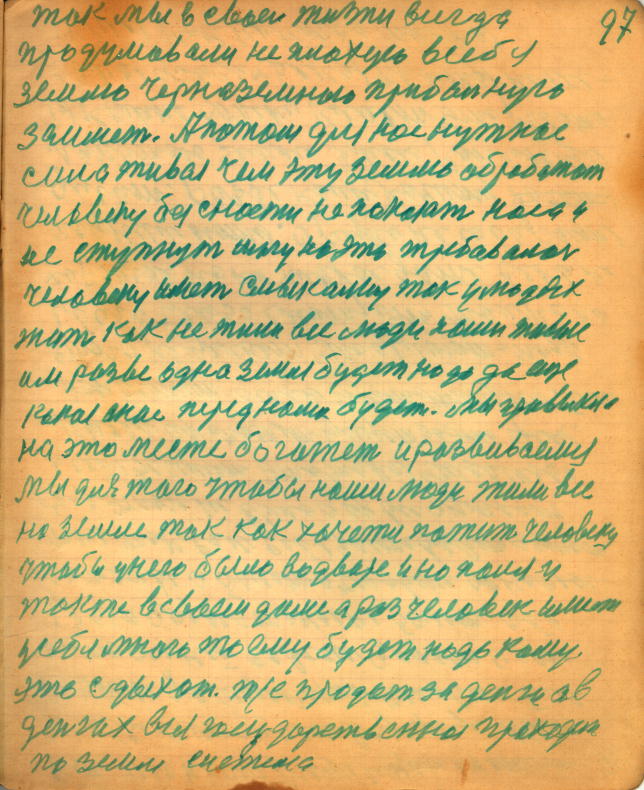 97
так мы в своей жизни всегда
продумовали не плохую всебя
землю черноземною прибольнуго
займет. А потом для нас нужная
сила живая чем эту землю обработат
человеку без сности не покопат нога и
не ступнут требавалас
человеку имет смыкалку так у людях
жит как не жили все люди наши живые
им разве одна земля будет надо да еще
какая она перед нами будет. Мы привыкли
на это месте богатет и развиваемся
мы для того чтобы наши люди жили все
на земле так как хочети пожит человеку
чтобы унего было водворе и на поля и
также всвоем доме а раз человек имеет
усебя много то ему будет надо кому
это сдыхат. т/е продат за денги а в
денгах вся государственная проходит
по земли система